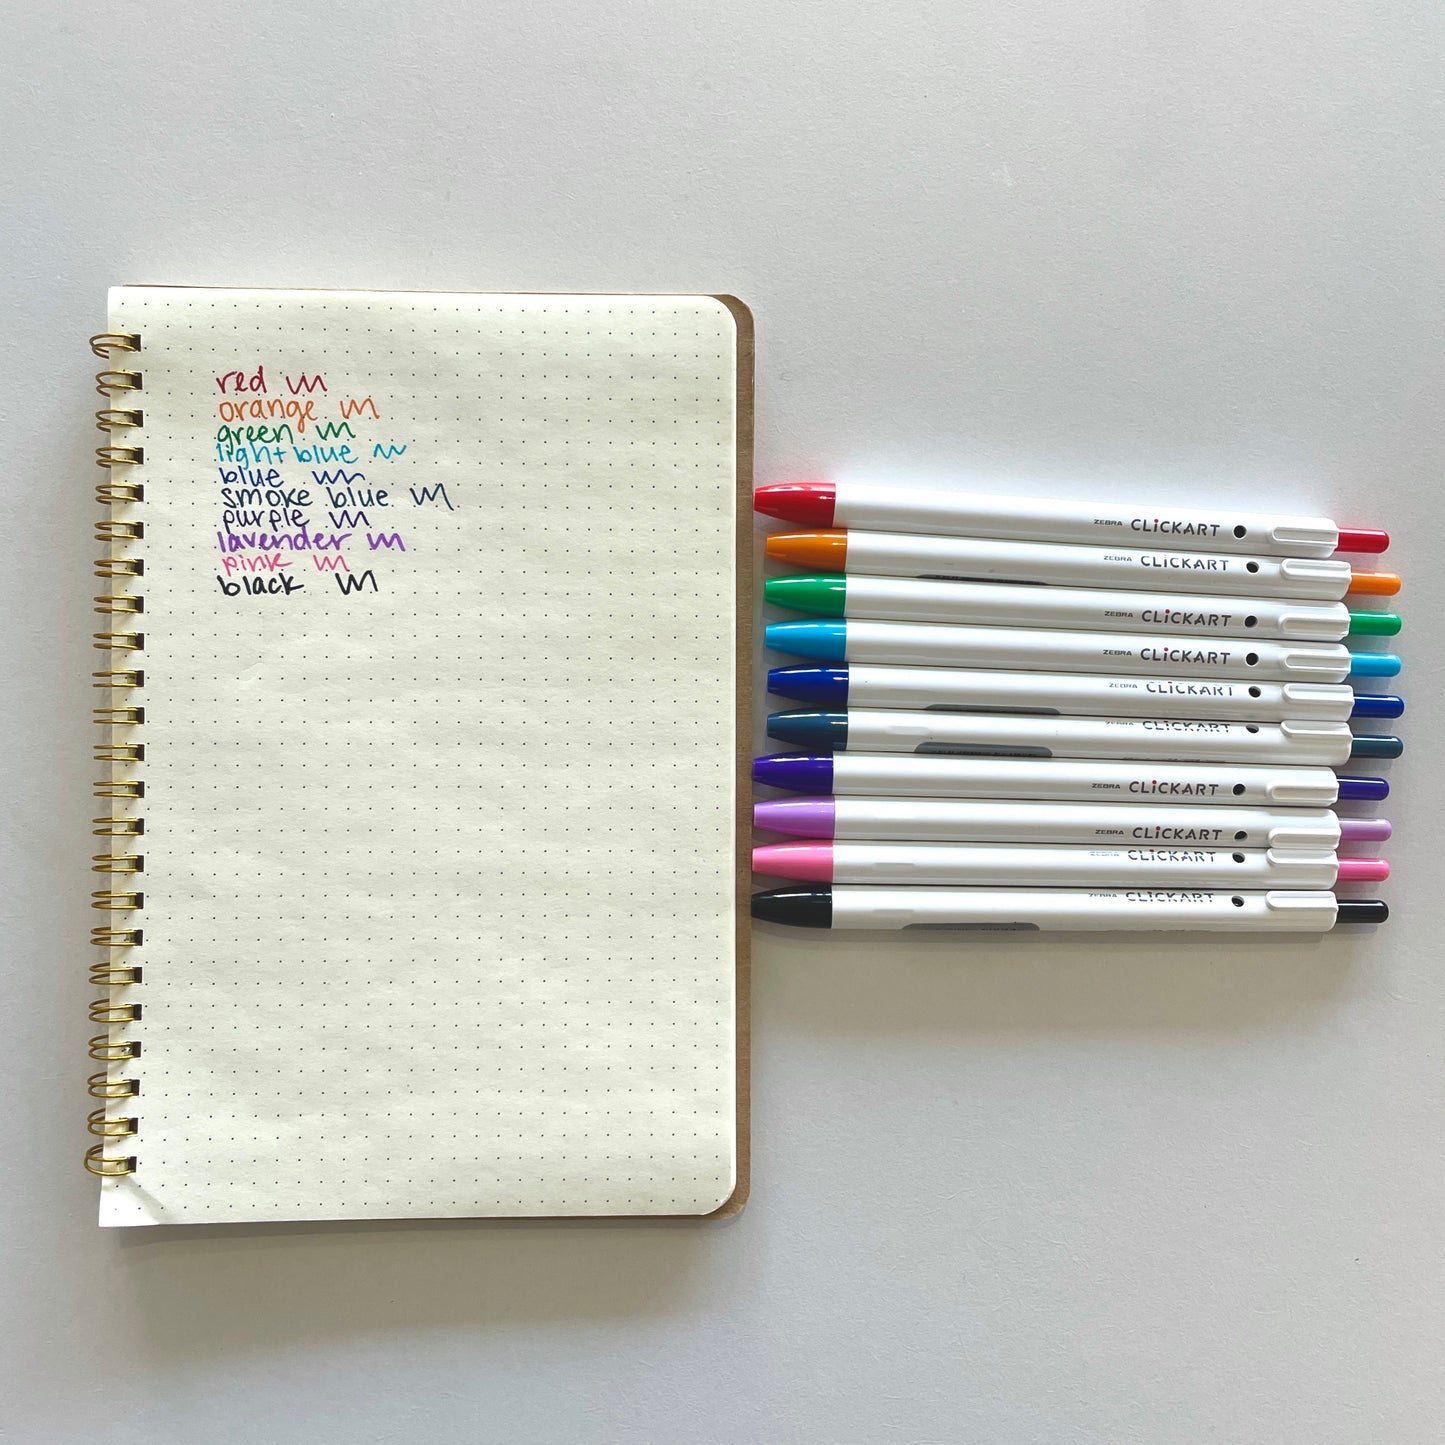 red
orange
green
light blue
blue
smoke blue
purple
lavender
pink
black
ZEBRA CLiCKART
ZEBRA CLiCKART
ZEBRA CLiCKART
ZEBRA CLiCKART
ZEBRA CLiCKART
ZEBRA CLiCKART
ZEBRA CLiCKART
ZEBRA CLiCKART
ZEBRA CLiCKART
ZEBRA CLiCKART